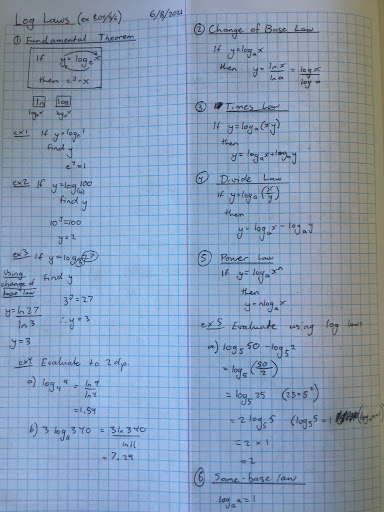 Log Laws (ex 2.05/5/6) 6/8/2021
① Fundamental Theorem
If y = logₑx
then eʸ = x
ln log
logₑx log₁₀x
ex1 If y = logₑ1
find y
eʸ = 1
ex2 If y = log₁₀100
find y
10ʸ = 100
y = 2
ex3 If y = log₃27
find y
3ʸ = 27
∴ y = 3
Using
change of
base law
y = ln27/ln3
y = 3
ex4 Evaluate to 2dp.
a)
= 1.54
b) 3 log₁₁340 = 3ln340/ln11
= 7.29
② Change of Base Law
If y = logₐx
then y = lnx/lna = logx/loga
③ Times Law
If y = logₐ(xy)
then
y = logₐx + logₐy
④ Divide Law
If y = logₐ(x/y)
then
y = logₐx - logₐy
⑤ Power Law
If y = logₐxⁿ
then
y = nlogₐx
ex 5 Evaluate using log laws
a) log₅50 - log₅2
= log₅(50/2)
= log₅25 (25 = 5²)
= 2log₅5 (log₅5 = 1
= 2 × 1
= 2
⑥ Same-base law
logₐa = 1